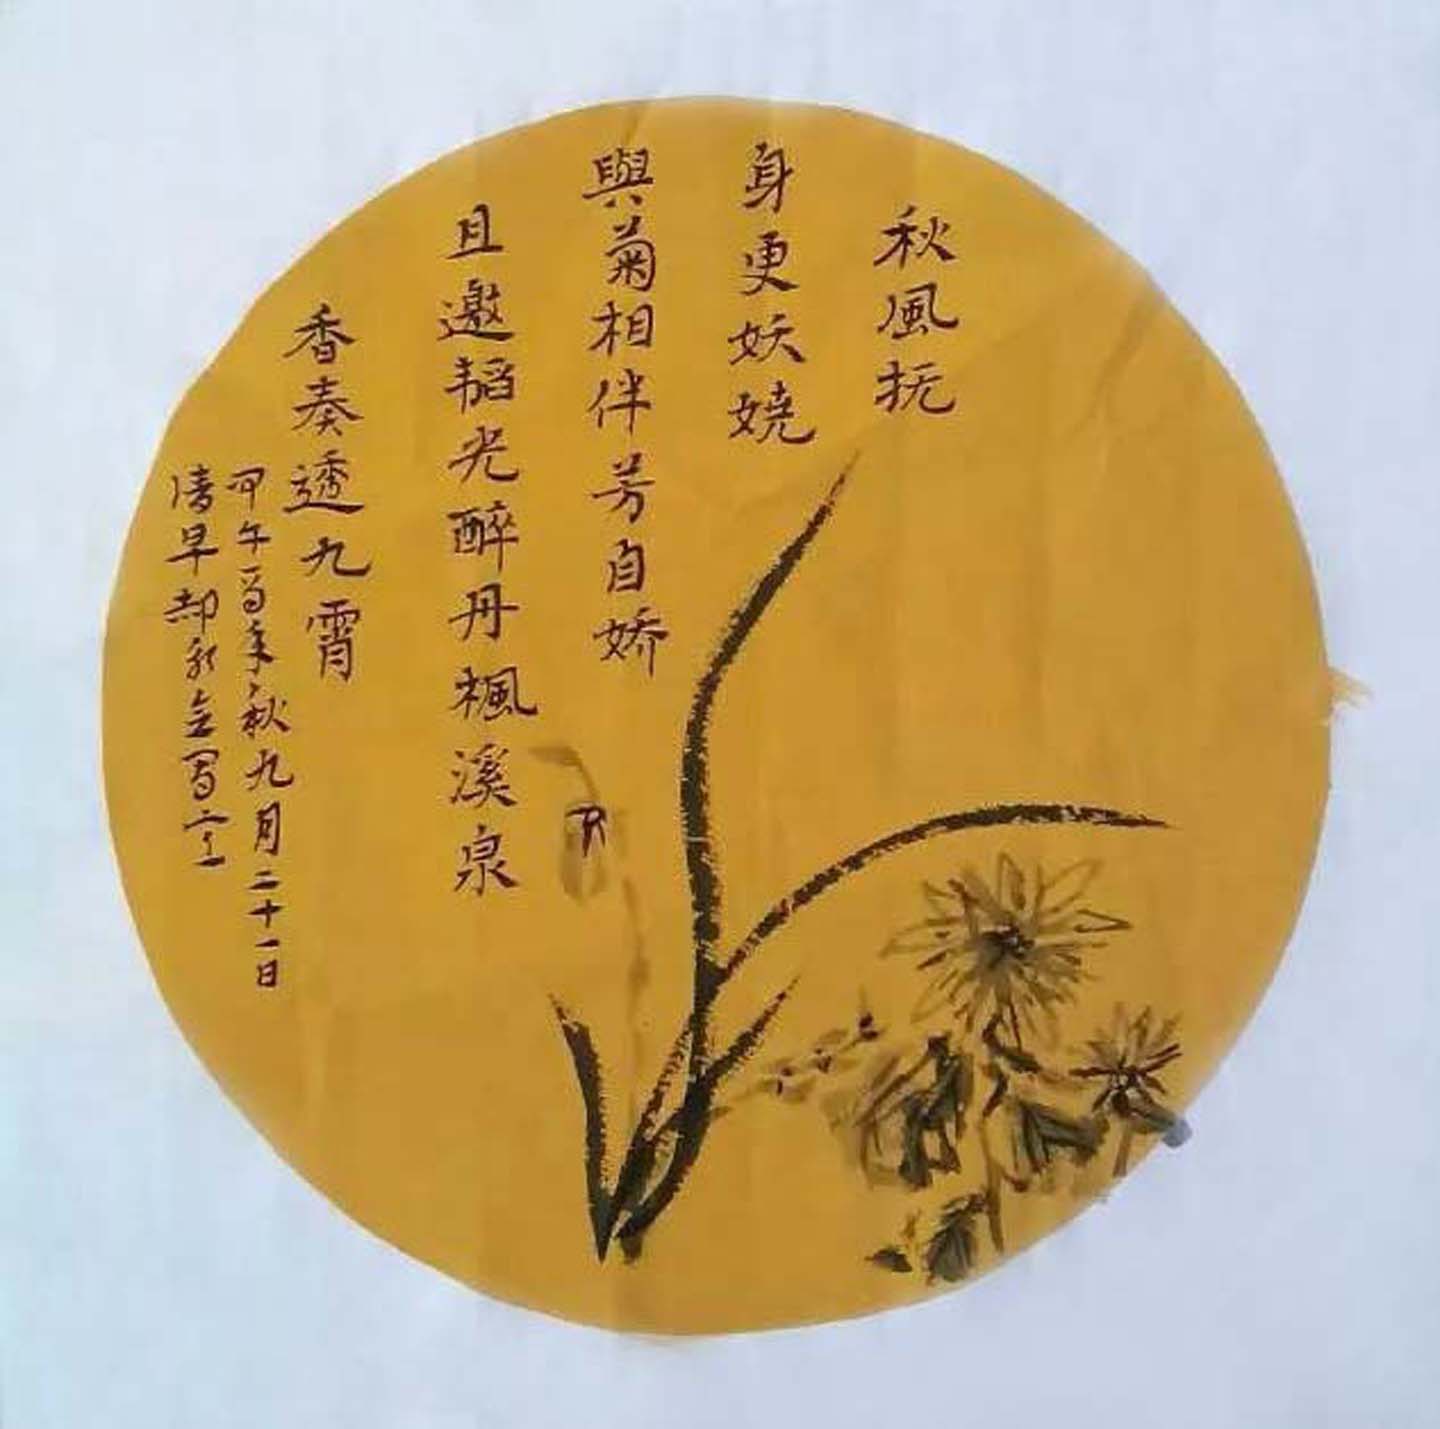 秋風抚
身更妖娆
與菊相伴芳自娇
且邀韬光醉丹楓溪泉
香奏透九霄
甲午马年秋九月二十一日
清早